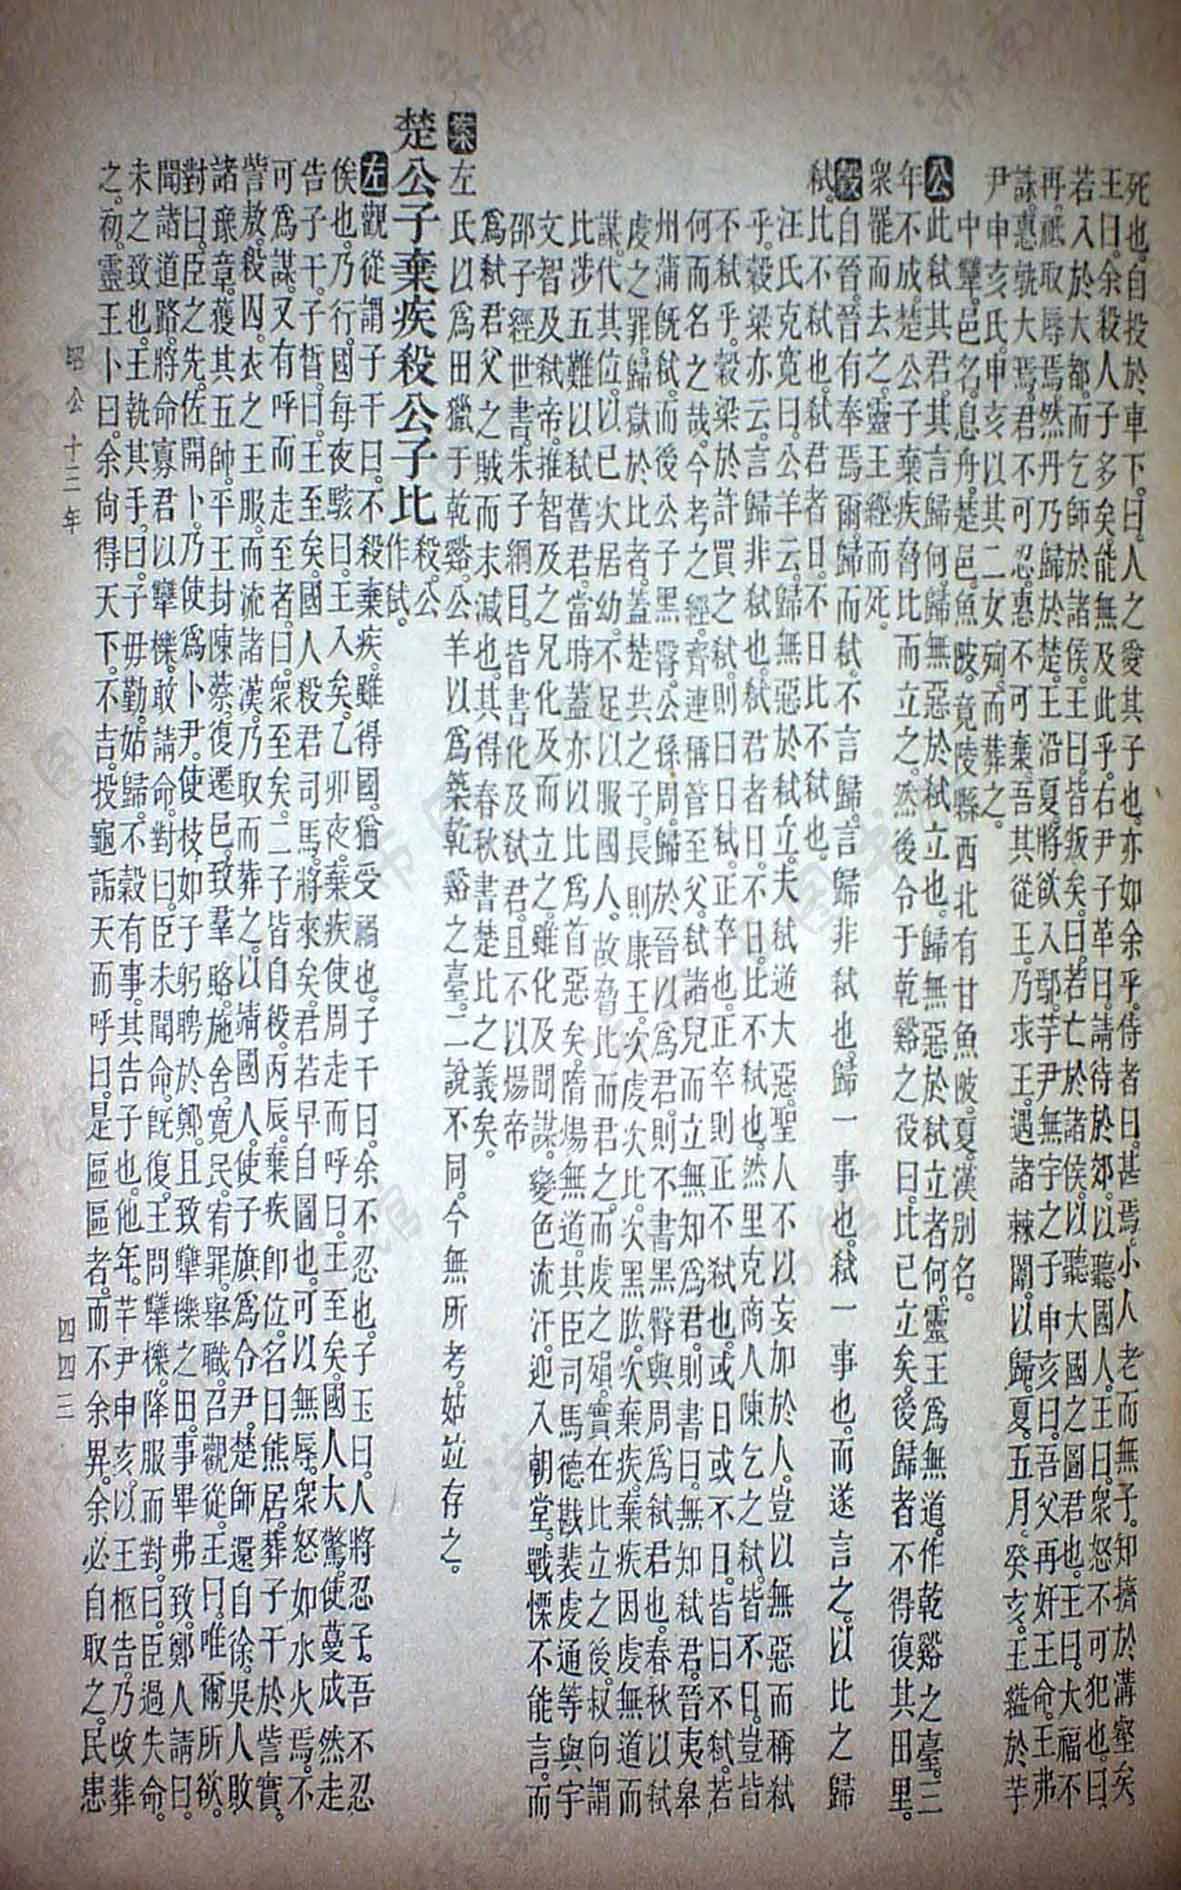 死也。自投於車下。曰。人之愛其子也。亦如余乎。侍者曰。甚焉。小人老而無子。知擠於溝壑矣。
王曰。余殺人子多矣。能無及此乎。右尹子革曰。請待於郊。以聽國人。王曰。衆怒不可犯也。曰。
若入於大都。而乞師於諸侯。王曰。皆叛矣。曰。若亡於諸侯。以聽大國之圖君也。王曰。大福不
再。祗取辱焉。然丹乃歸於楚。王沿夏。將欲入鄢。芋尹無宇之子申亥曰。吾父再奸王命。王弗
誅。惠孰大焉。君不可忍。惠不可棄。吾其從王。乃求王。遇諸棘闈。以歸。夏。五月。癸亥。王縊於芋
尹申亥氏。申亥以其二女殉。而葬之。
中犨。邑名。息舟。楚邑。魚陂。竟陵縣西北有甘魚陂。夏。漢別名。
公此弒其君。其言歸何。歸無惡於弒立也。歸無惡於弒立者何。靈王爲無道。作乾谿之臺。三
年不成。楚公子棄疾脅比而立之。然後令于乾谿之役曰。比已立矣。後歸者不得復其田里。
衆罷而去之。靈王經而死。
穀自晉。晉有奉焉爾。歸而弒。不言歸。言歸非弒也。歸一事也。弒一事也。而遂言之。以比之歸
弒。比不弒也。弒君者日。不日。比不弒也。
汪氏克寬曰。公羊云。歸無惡於弒立。夫弒逆大惡。聖人不以妄加於人。豈以無惡而稱弒
乎。穀梁亦云。言歸非弒也。弒君者日。不日。比不弒也。然里克商人陳乞之弒。皆不日。豈皆
不弒乎。穀梁於許買之弒。則曰日弒。正卒也。正卒則正不弒也。或日或不日。皆曰不弒。若
何而名之哉。今考之經。齊連稱管至父弒諸兒而立無知爲君。則書曰。無知弒君。晉夷皋
州蒲旣弒。而後公子黑臀。公孫周歸於晉以爲君。則不書黑臀與周爲弒君也。春秋以弒
虔之罪歸獄於比者。蓋楚共之子。長則康王。次虔。次比。次黑肱。次棄疾。棄疾因虔無道而
謀代其位。以己次居幼。不足以服國人。故脅比而君之。而虔之殞。實在比立之後。叔向謂
比涉五難以弒舊君。當時蓋亦以比爲首惡矣。隋煬無道。其臣司馬德戡裴虔通等與宇
文智及弒帝。推智及之兄化及而立之。雖化及聞謀。變色流汗。迎入朝堂。戰慄不能言。而
邵子經世書。朱子綱目。皆書化及弒君。且不以煬帝
爲弒君父之賊而末減也。其得春秋書楚比之義矣。
案左氏以爲田獵于乾谿。公羊以爲築乾谿之臺。二說不同。今無所考。姑竝存之。
楚公子棄疾殺公子比殺。公作弒。
左觀從謂子干曰。不殺棄疾。雖得國。猶受禍也。子干曰。余不忍也。子玉曰。人將忍子。吾不忍
俟也。乃行。國每夜駭曰。王入矣。乙卯夜。棄疾使周走而呼曰。王至矣。國人大驚。使蔓成然走
告子干。子晳曰。王至矣。國人殺君司馬。將來矣。君若早自圖也。可以無辱。衆怒如水火焉。不
可爲謀。又有呼而走至者曰。衆至矣。二子皆自殺。丙辰。棄疾卽位。名曰熊居。葬子干於訾。實
訾敖。殺囚。衣之王服。而流諸漢。乃取而葬之。以靖國人。使子旗爲令尹。楚師還自徐。吳人敗
諸豫章。獲其五帥。平王封陳蔡。復遷邑。致羣賂。施舍。寬民。宥罪。舉職。召觀從。王曰。唯爾所欲。
對曰。臣之先。佐開卜。乃使爲卜尹。使枝如子躬聘於鄭。且致犨櫟之田。事畢弗致。鄭人請曰。
聞諸道路。將命寡君以犨櫟。敢請命。對曰。臣未聞命。旣復。王問犨櫟。降服而對曰。臣過失命。
未之致也。王執其手。曰。子毋勤。姑歸。不穀有事。其告子也。他年。芋尹申亥。以王柩告。乃改葬
之。初。靈王卜曰。余尙得天下。不吉。投龜詬天而呼曰。是區區者。而不余畀。余必自取之。民患
昭公 十三年
四四三